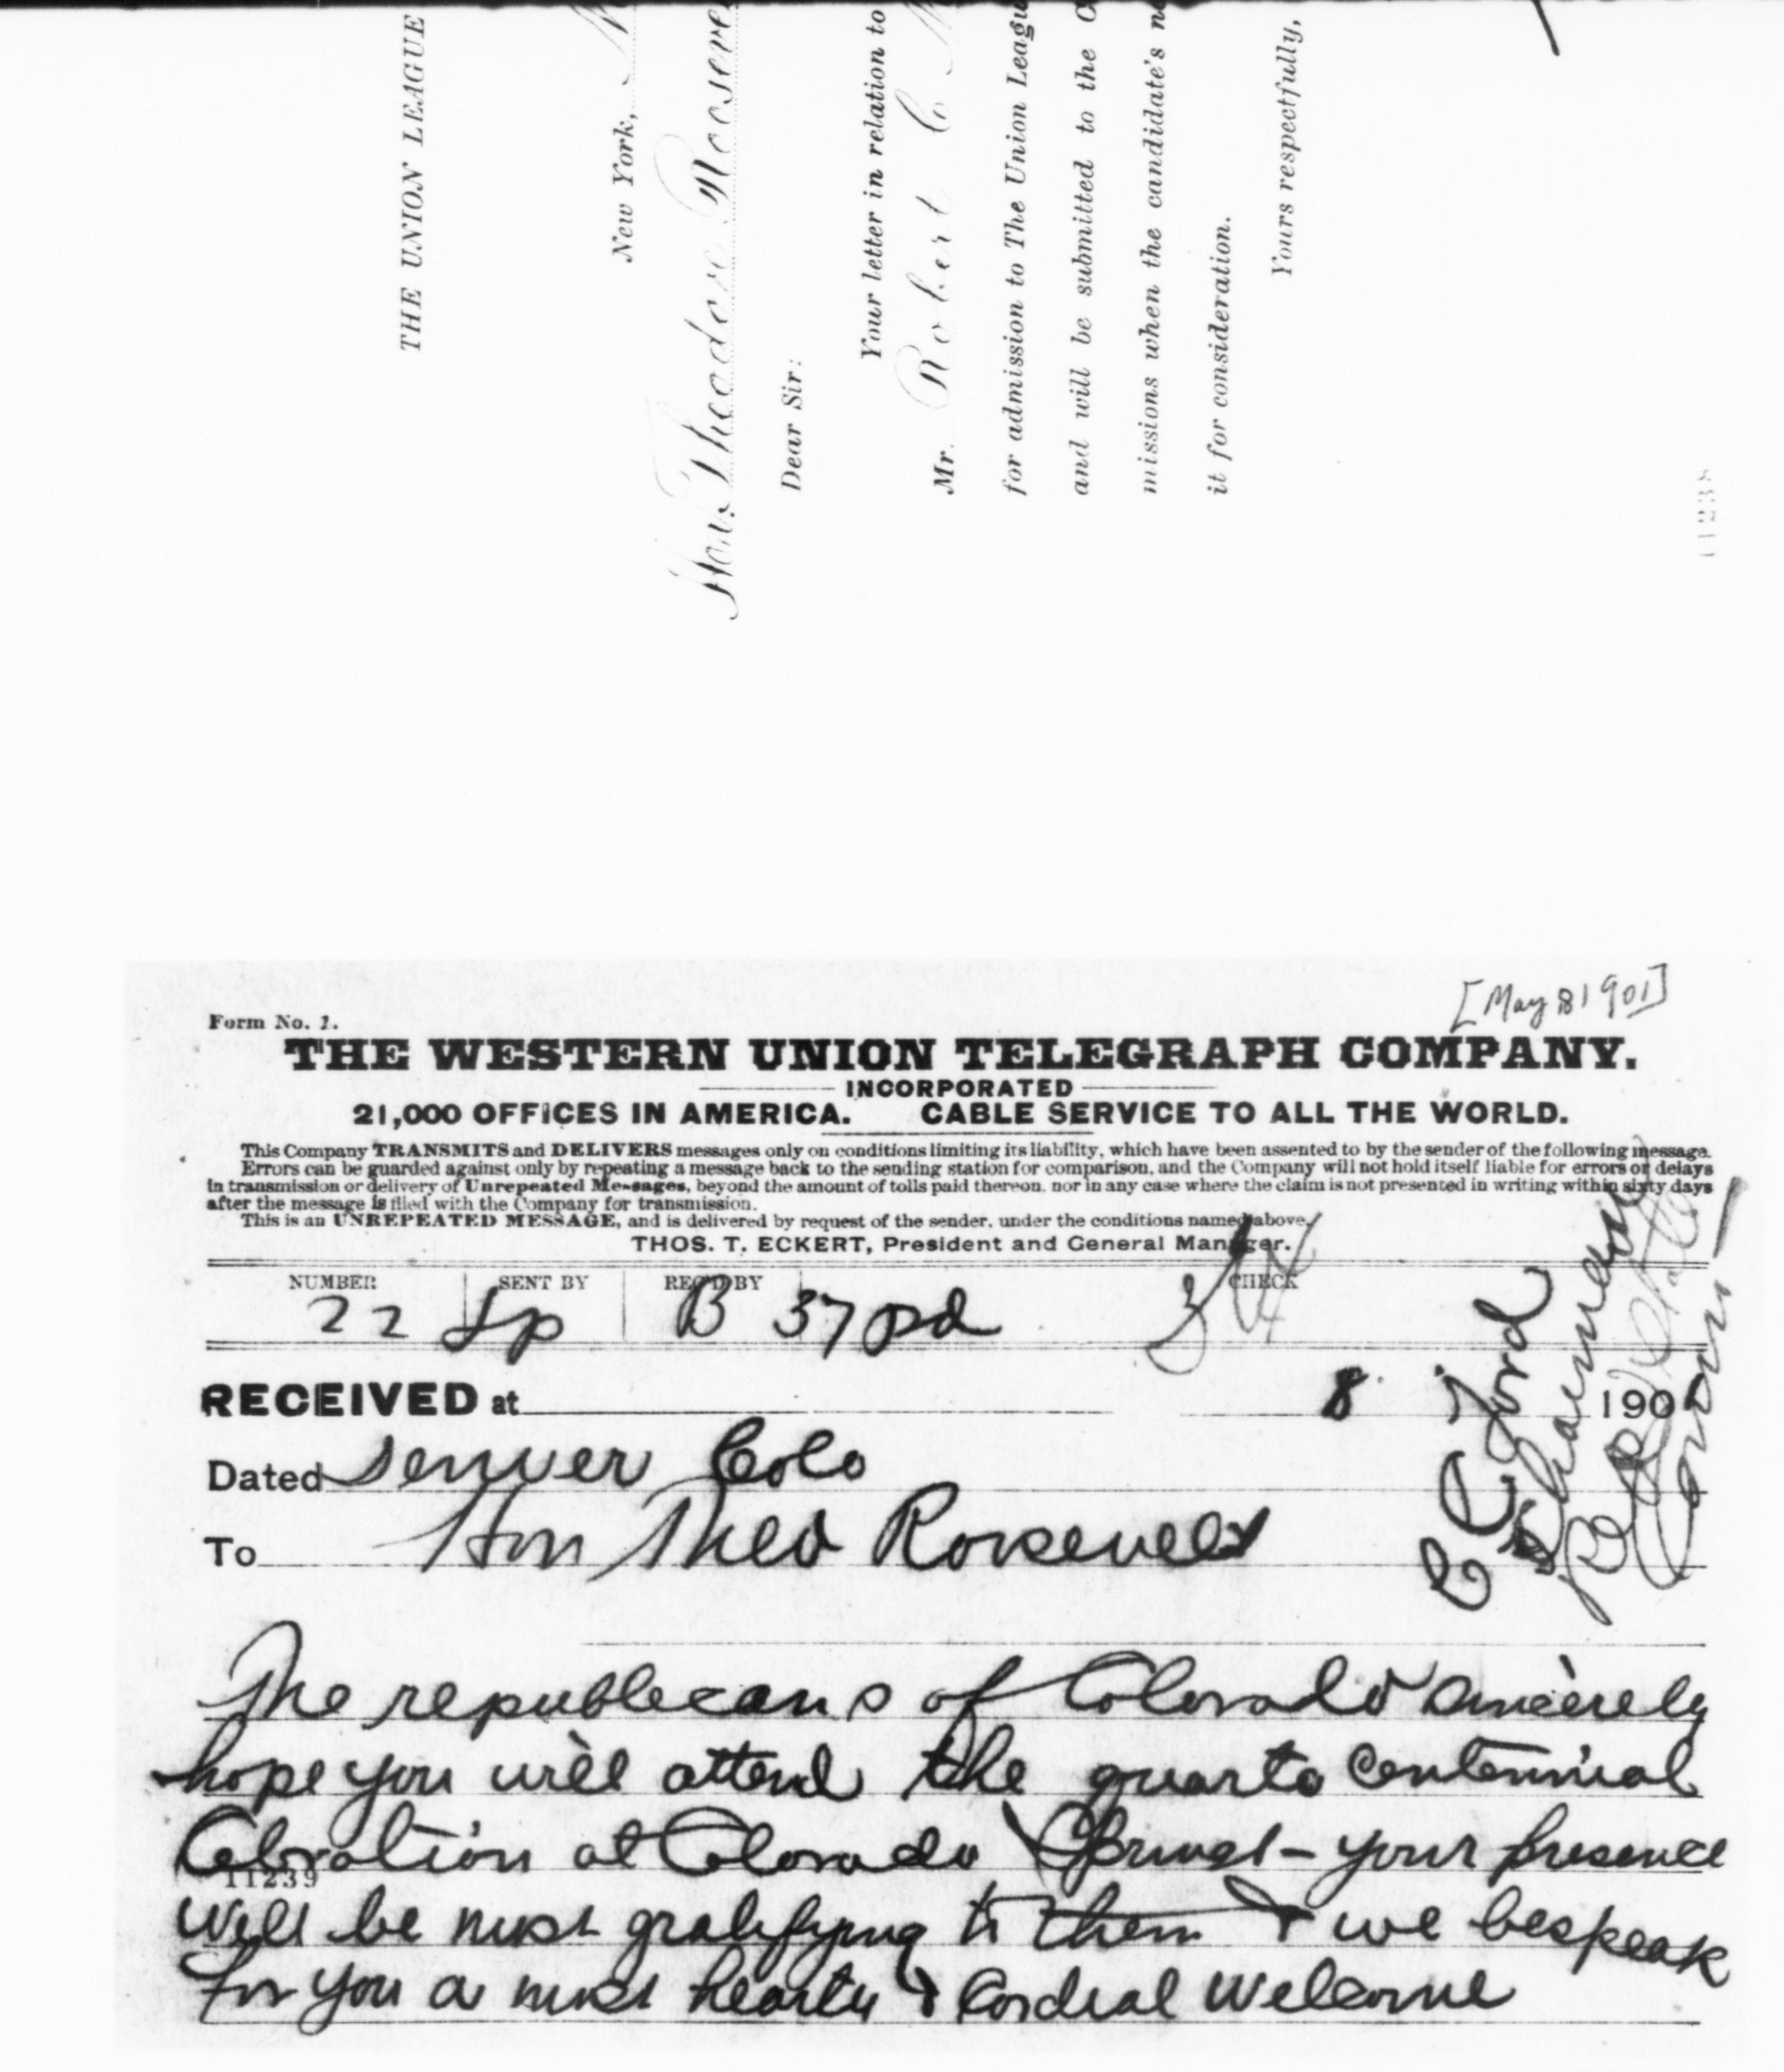 THE UNION LEAGUE
New York,
Hon. Theodore Rooseve
Dear Sir:
Your letter in relation to
Mr. Robert C
for admission to The Union Leagu
and will be submitted to the C
missions when the candidate's n
it for consideration.
Yours respectfully,
11238
[May 8 1901]
Form No. 1.
THE WESTERN UNION TELEGRAPH COMPANY.
INCORPORATED
21,000 OFFICES IN AMERICA. CABLE SERVICE TO ALL THE WORLD.
This Company TRANSMITS and DELIVERS messages only on conditions limiting its liability, which have been assented to by the sender of the following message.
Errors can be guarded against only by repeating a message back to the sending station for comparison, and the Company will not hold itself liable for errors or delays
in transmission or delivery of Unrepeated Messages, beyond the amount of tolls paid thereon, nor in any case where the claim is not presented in writing within sixty days
after the message is filed with the Company for transmission.
This is an UNREPEATED MESSAGE, and is delivered by request of the sender, under the conditions named above.
THOS. T. ECKERT, President and General Manager.
NUMBER SENT BY REC'D BY CHECK
22 B 37 pd
RECEIVED at 8 190
Dated Denver Colo
To Hon Theo Roosevelt
C C Ford
Chairman
The republicans of Colorado sincerely
hope you will attend the quarto centennial
Celbration at Colorado Springs - your presence
11239
will be most gratifying to them & we bespeak
for you a most hearty & Cordial Welcome